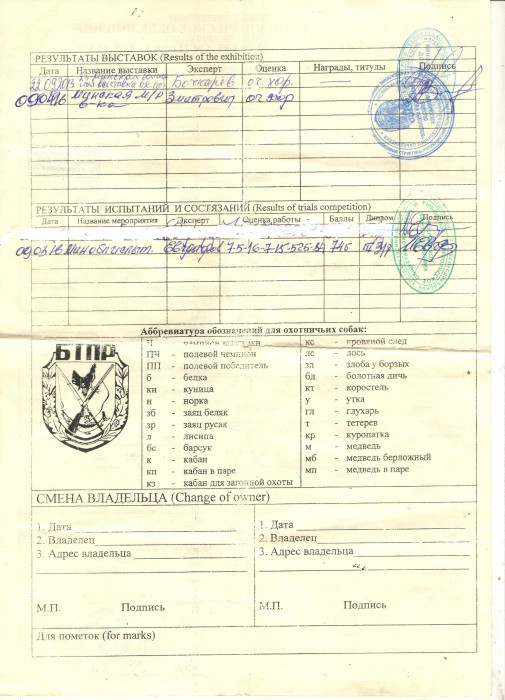 РЕЗУЛЬТАТЫ ВЫСТАВОК (Results of the exhibition)
Дата Название выставки Эксперт Оценка Награды, титулы Подпись
22.09.2013 выставка Бочкарёв оч. хор.
Минская в-ка Зматрович оч. хор
РЕЗУЛЬТАТЫ ИСПЫТАНИЙ И СОСТЯЗАНИЙ (Results of trials competition)
Дата Название мероприятия Эксперт Оценка работы Баллы Диплом Подпись
Аббревиатура обозначений для охотничьих собак:
БТПР
Ч - чемпион
ПЧ - полевой чемпион
ПП - полевой победитель
б - белка
кн - куница
н - норка
зб - заяц беляк
зр - заяц русак
л - лисица
бс - барсук
к - кабан
кп - кабан в паре
кз - кабан для загонной охоты
кс - кровяной след
лс - лось
зл - злоба у борзых
бд - болотная дичь
кт - коростель
у - утка
гл - глухарь
т - тетерев
кр - куропатка
м - медведь
мб - медведь берложный
мп - медведь в паре
СМЕНА ВЛАДЕЛЬЦА (Change of owner)
1. Дата
2. Владелец
3. Адрес владельца
М.П. Подпись
1. Дата
2. Владелец
3. Адрес владельца
М.П. Подпись
Для пометок (for marks)